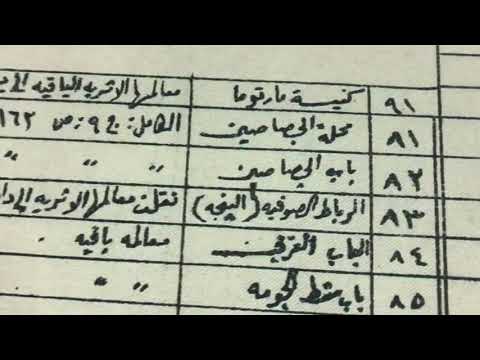 ٩١ كنيسة مارتوما معالمها الاثريه الباقيه
٨١ محلة الجصاصين الكامل: ج ٩: ص ١٦٢
٨٢ باب الجصاصين " " "
٨٣ الرباط الصوفيه (البنجه) نقلت معالمها الاثريه الى دار
٨٤ الباب الغربي معالمه باقيه .
٨٥ باب مسقط الجومه " "